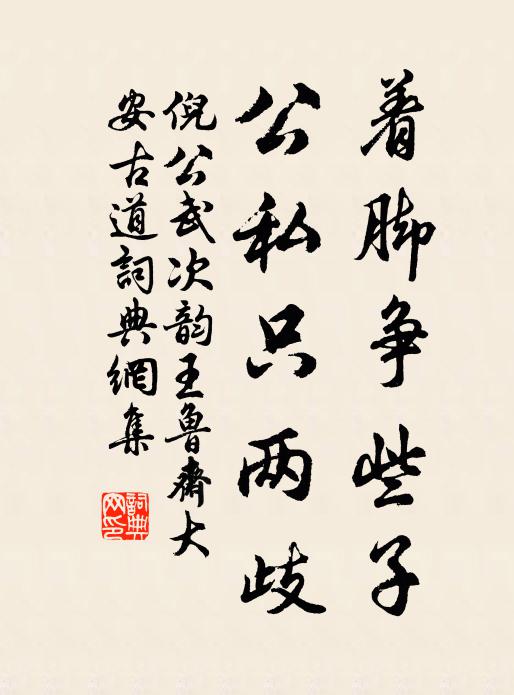 着脚争些子
公私只两歧
倪公武次韵王鲁斋大
安古道詞典網集
詞典網印